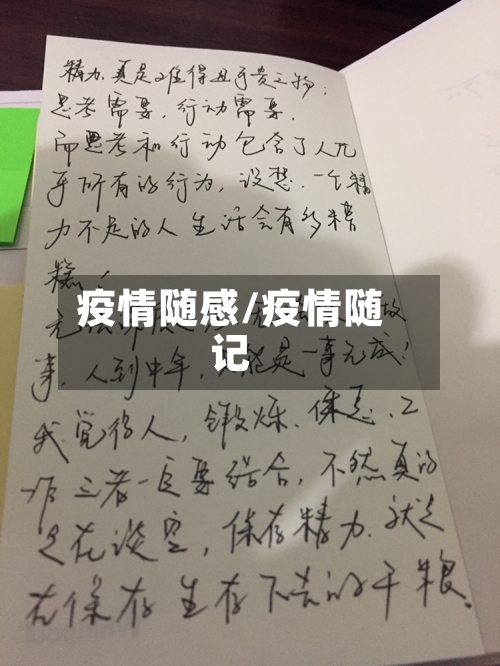 精力真是难得且可贵之物；
思考需要，行动需要，
而思考和行动包含了人几
乎所有的行为，设想，一个精
力不足的人生活会有多糟
糕！
疫情随感/疫情随
记
事，人到中年，一事无成！
我觉得人，锻炼、休息、工
作三者一定要结合，不然真的
是在谈空，保存精力，就是
在保存生存下去的干粮。